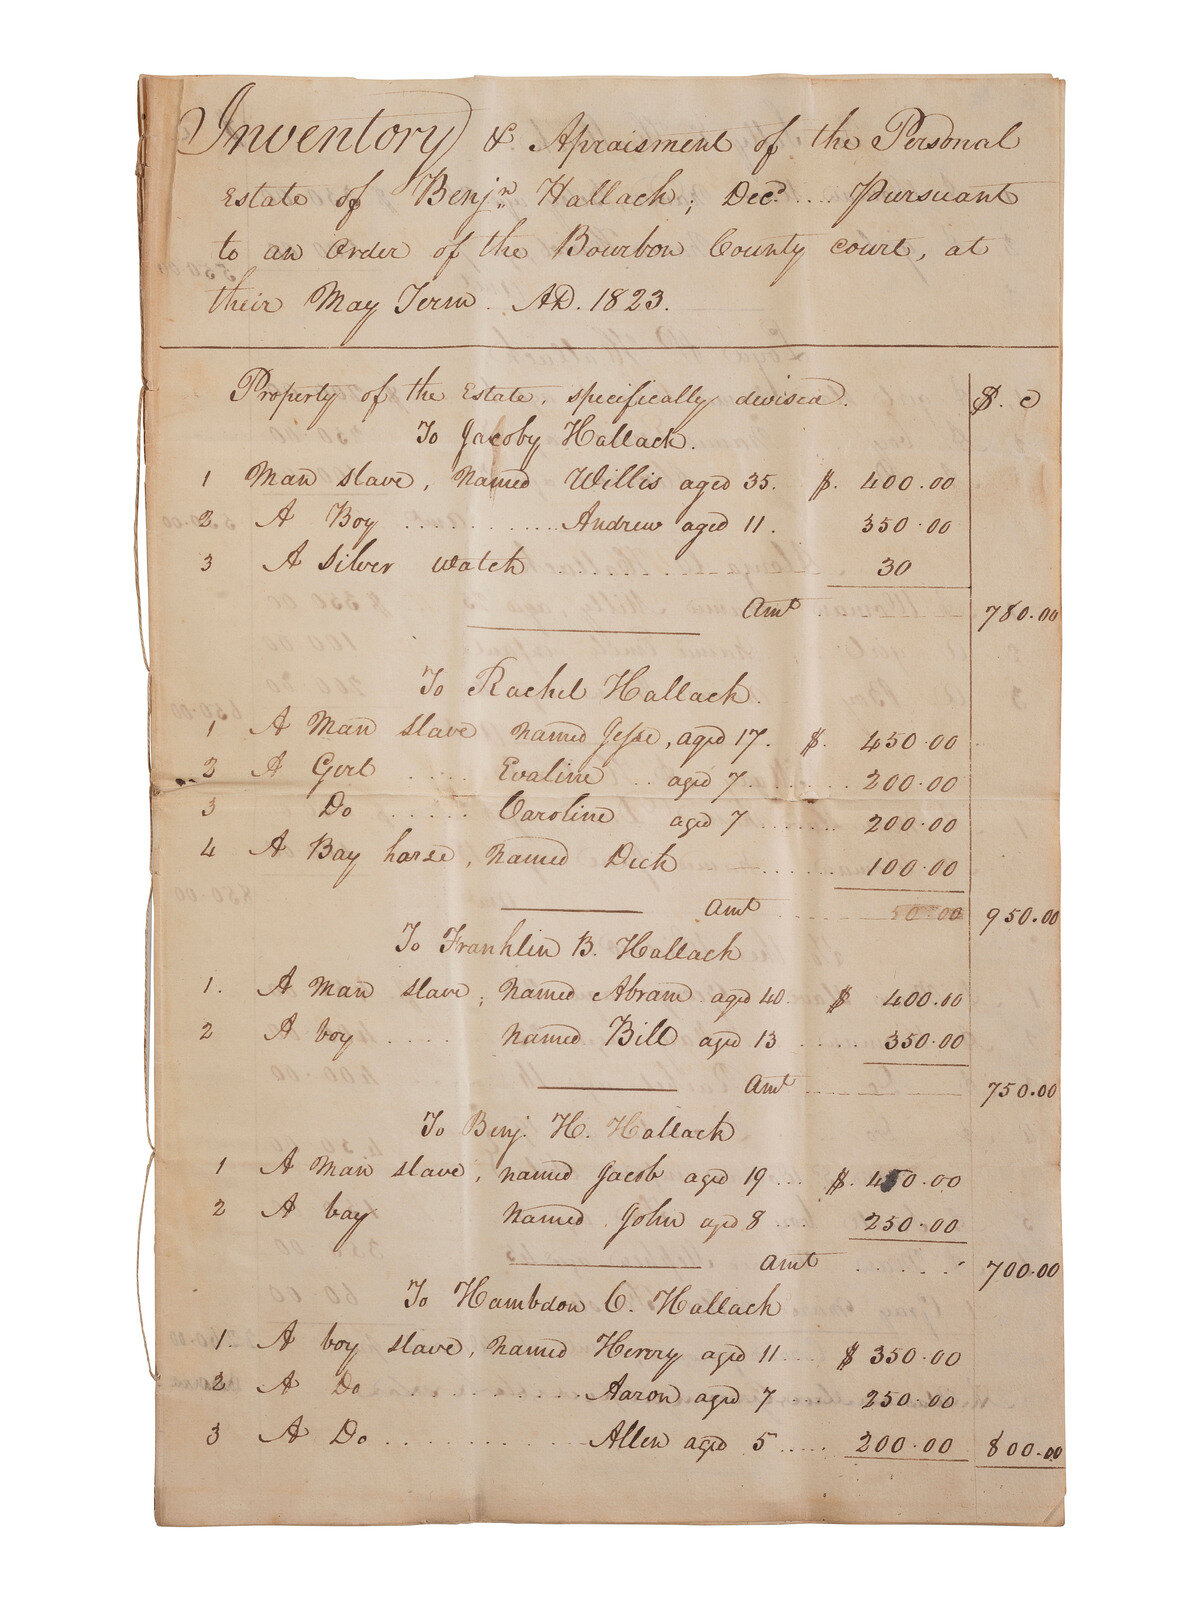 Inventory & Apraisment of the Personal
Estate of Benjn. Hallack; Decd .... Pursuant
to an Order of the Bourbon County court, at
their May Term AD. 1823.
Property of the Estate, specifically devised. $. c
To Jacoby Hallack.
1 Man slave, named Willis aged 35. $. 400.00
2 A Boy ............ Andrew aged 11. 350.00
3 A Silver watch .................. 30
Amt 780.00
To Rachel Hallack.
1 A Man slave named Jesse, aged 17. $. 450.00
2 A Gerl ..... Evaline .. aged 7 ....... 200.00
3 Do ...... Caroline aged 7 ....... 200.00
4 A Bay horse, named Dick ....... 100.00
Amt ....... 950.00
To Franklin B. Hallack
1. A Man slave, named Abram aged 40. $ 400.00
2 A boy ..... named Bill aged 13 ..... 350.00
Amt ....... 750.00
To Benj. H. Hallack
1 A Man slave, named Jacob aged 19 ... $. 450.00
2 A boy named John aged 8 ... 250.00
Amt ...... 700.00
To Hambdon C. Hallack
1. A boy slave, named Henry aged 11 .... $ 350.00
2 A Do ............ Aaron aged 7 250.00
3 A Do ............ Allen aged 5 ..... 200.00 800.00